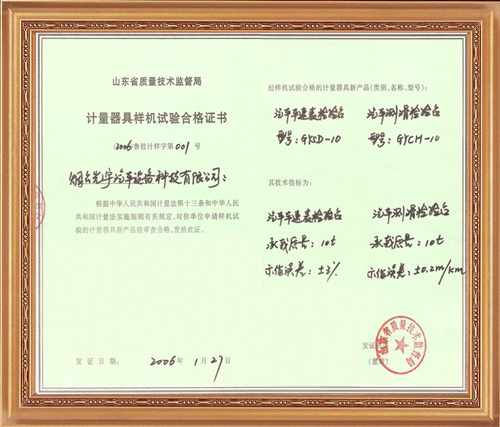 山东省质量技术监督局
计量器具样机试验合格证书
(2006鲁技计样字第001号
烟台光宇汽车设备科技有限公司:
根据中华人民共和国计量法第十三条和中华人民共
和国计量法实施细则有关规定,对你单位申请样机试
验的计量器具新产品经审查合格,发给此证。
发证日期: 2006年1月27日
经样机试验合格的计量器具新产品(类别、名称、型号):
汽车车速表检验台 汽车侧滑检验台
型号: GYSD-10 型号: GYCH-10
其技术指标为:
汽车车速表检验台 汽车侧滑检验台
承载质量: 10t 承载质量: 10t
示值误差: ±3% 示值误差: ±0.2m/km
山东省质量技术监督局
发证
(盖章)